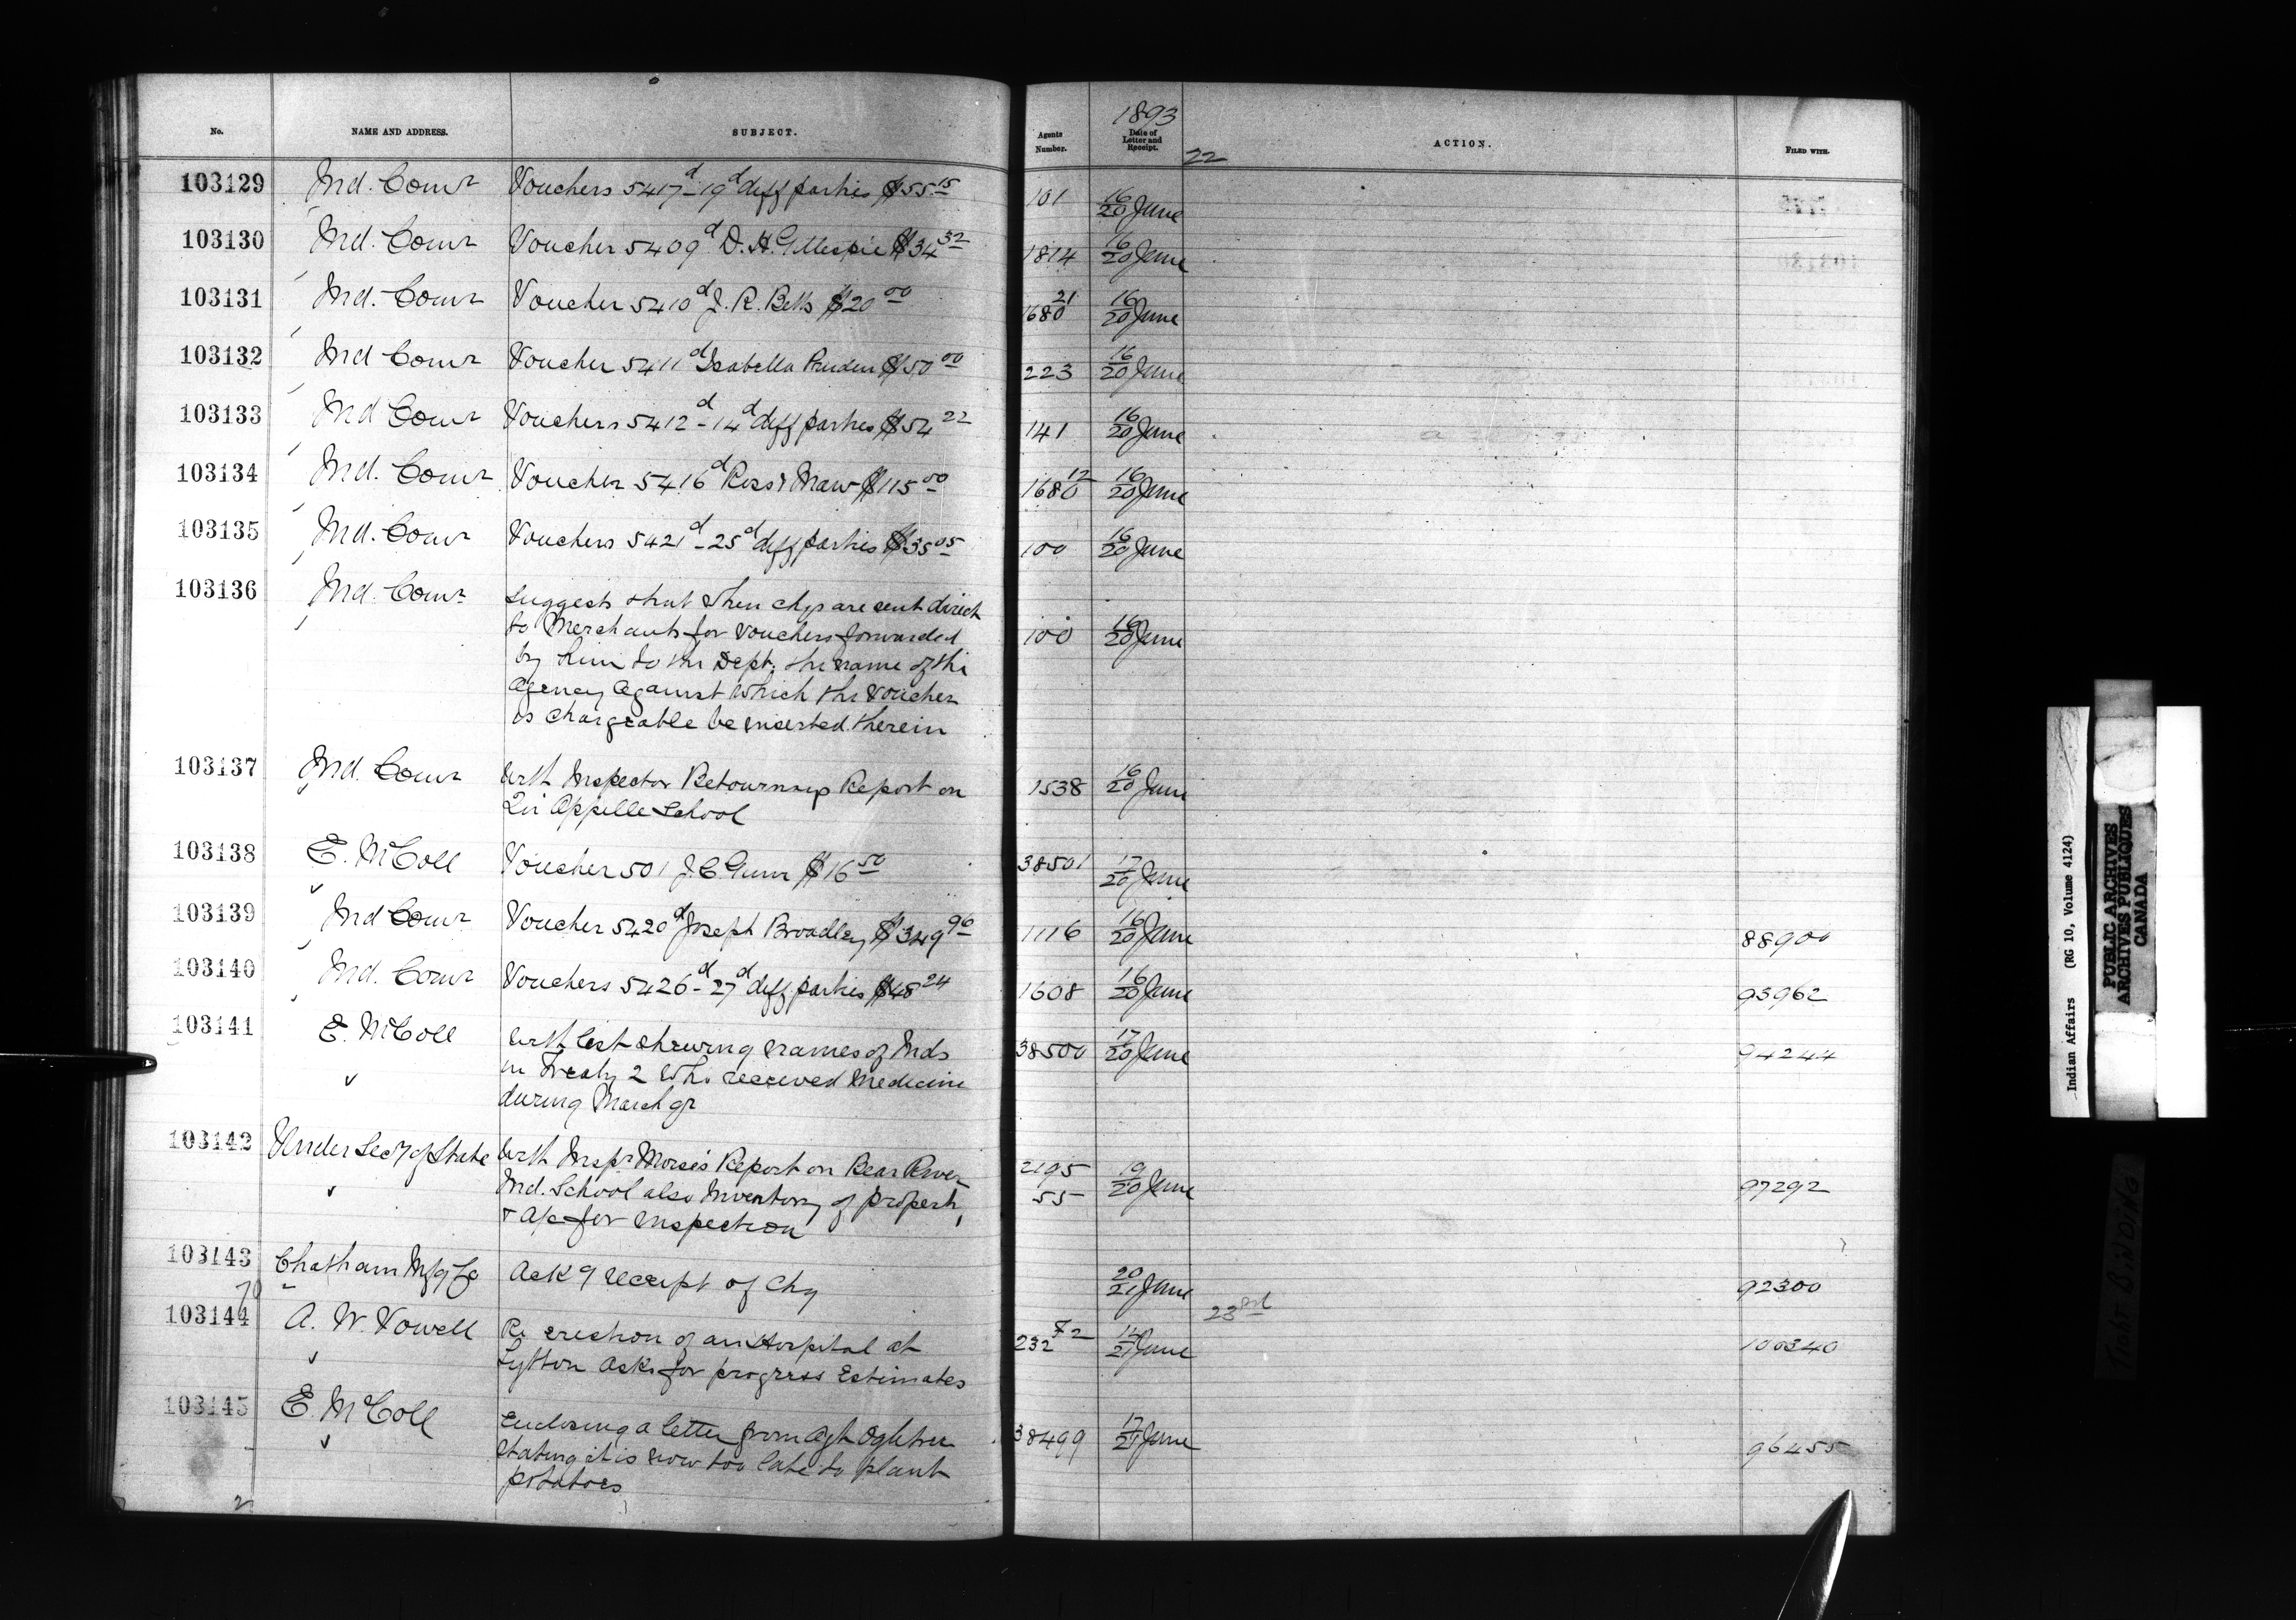 No. NAME AND ADDRESS. SUBJECT. Agents Number. 1893 Date of Letter and Receipt. ACTION. FILED WITH.
22
103129 Ind. Comr Vouchers 5417d-19d diff parties $55.15 101 16/20 June
103130 Ind. Comr Voucher 5409d D. H. Gillespie $34.32 1814 16/20 June
103131 Ind. Comr Voucher 5410d J. R. Betts $20.00 1680 21 16/20 June
103132 Ind Comr Voucher 5411d Isabella Pruden $50.00 223 16/20 June
103133 Ind Comr Vouchers 5412d-14d diff parties $54.22 141 16/20 June
103134 Ind. Comr Voucher 5416d Ross & Maw $115.00 1680 12 16/20 June
103135 Ind. Comr Vouchers 5421d-25d diff parties $35.05 100 16/20 June
103136 Ind. Comr Suggests that when chqs are sent direct 100 16/20 June
to Merchants for Vouchers forwarded
by him to the Dept. the name of the
Agency against which the voucher
is chargeable be inserted therein
103137 Ind. Comr With Inspector Betournays Report on 1538 16/20 June
Qu'Appelle School
103138 E. McColl Voucher 501 J. C. Gunn $16.50 38501 17/20 June
103139 Ind Comr Voucher 5420d Joseph Broadley $349.96 1116 16/20 June 88900
103140 Ind. Comr Vouchers 5426d-27d diff parties $48.24 1608 16/20 June 93962
103141 E. McColl With list shewing names of Inds 38500 17/20 June 94244
in Treaty 2 who received medicine
during March qr
103142 Under Secy of State With Inspr Morse's Report on Bear River 2195 55 19/20 June 97292
Ind. School also Inventory of property
& a/c for inspection
103143 Chatham Mfg Co Ack g receipt of chq 20/21 June 92300
70
23rd
103144 A. W. Vowell Re erection of an Hospital at 232 72 14/21 June 100340
Lytton asks for progress Estimates
103145 E. McColl Enclosing a letter from Agt Ogletree 38499 17/21 June 96455
stating it is now too late to plant
potatoes
Indian Affairs (RG 10, Volume 4124)
PUBLIC ARCHIVES
ARCHIVES PUBLIQUES
CANADA
TIGHT BINDING